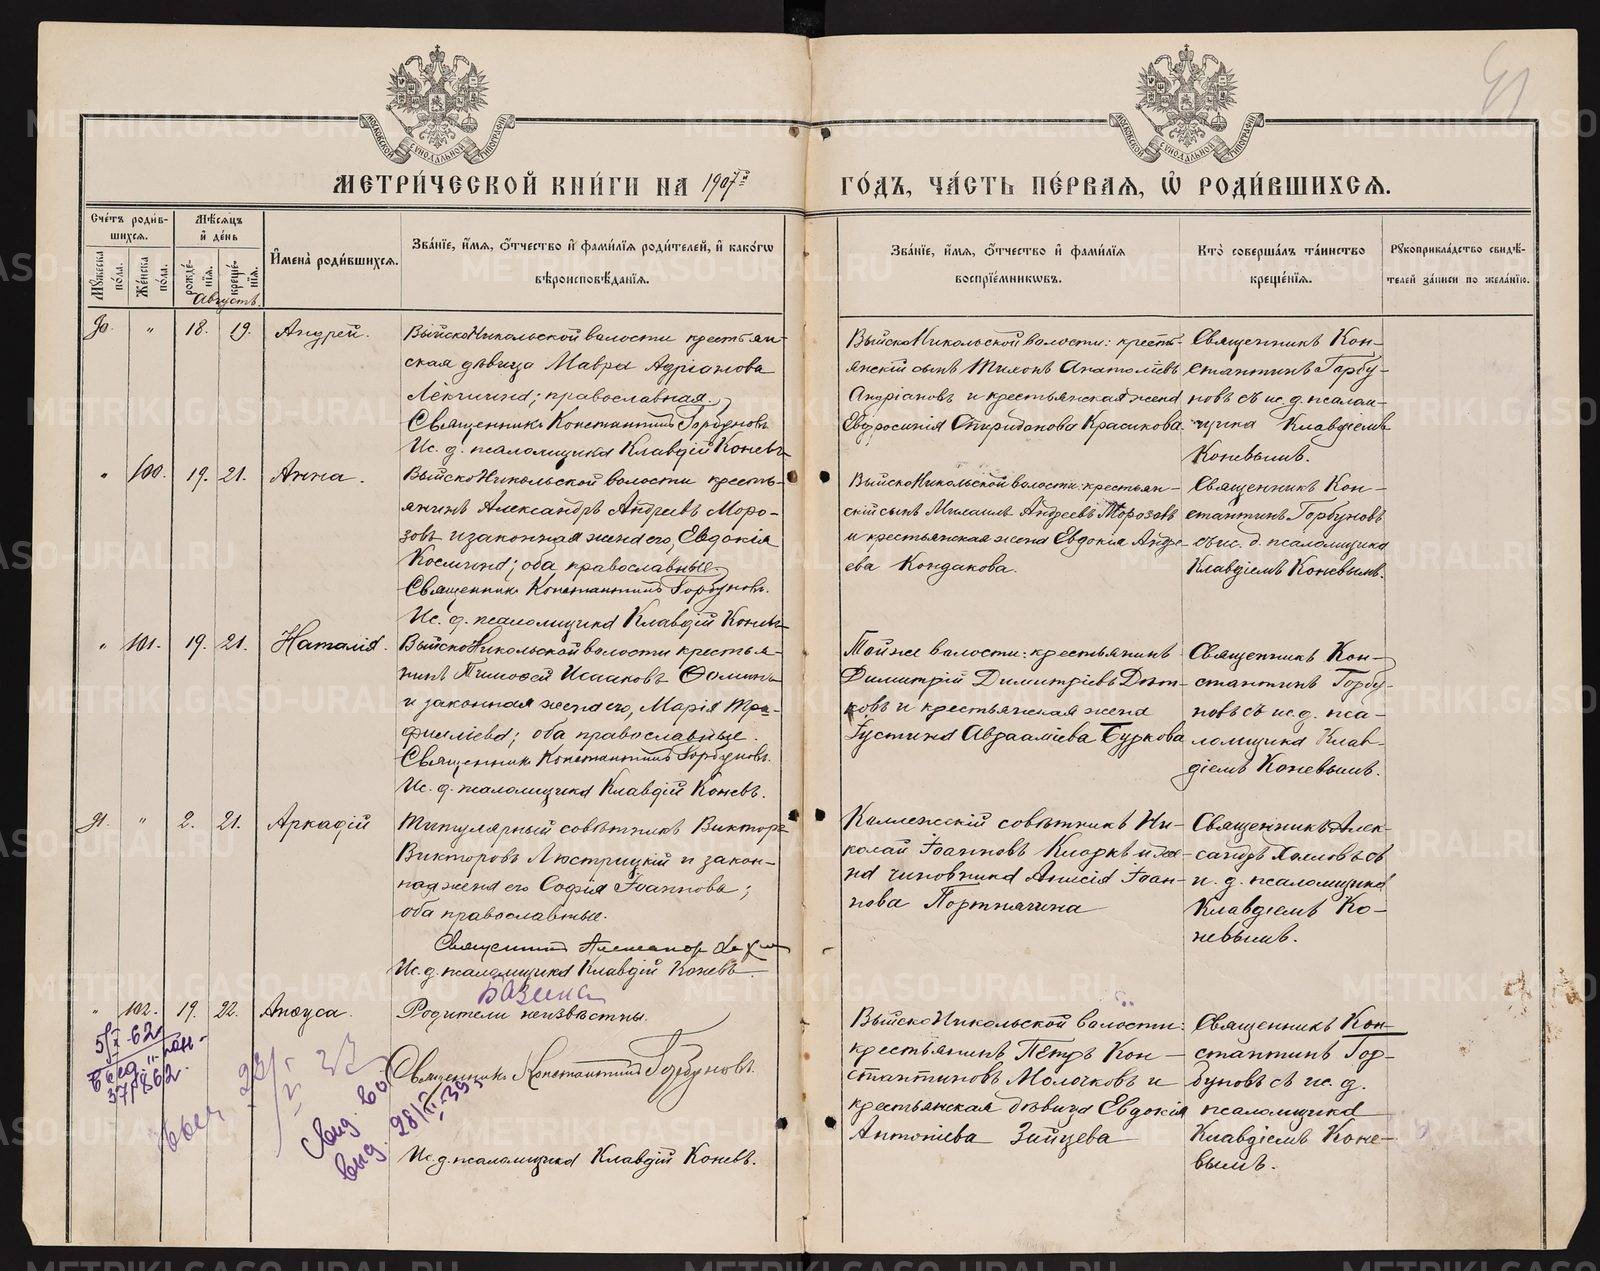 МЕТРИЧЕСКОЙ КНИГИ НА 1907й ГОДЪ, ЧАСТЬ ПЕРВАЯ, Ѡ РОДИВШИХСЯ.
Счетъ родив-
шихся.
Мужеска пола.
Женска пола.
Мѣсяцъ
и день
рожденія.
крещенія.
Имена родившихся.
Званіе, имя, отчество и фамилія родителей, и какогѡ
вѣроисповѣданія.
Званіе, имя, отчество и фамилія
воспріемниковъ.
Кто совершалъ таинство
крещенія.
Рукоприкладство свидѣ-
телей записи по желанію.
Августъ.
90. " 18. 19. Андрей.
ВыйскоНикольской волости крестьян-
ская дѣвица Мавра Адріанова
православная.
Священникъ Константинъ Горбуновъ
Ис. д. псаломщика Клавдій Коневъ
ВыйскоНикольской волости: кресть-
янскій сынъ Тихонъ Анатоліевъ
Андріановъ и крестьянская жена
Евфросинія Спиридонова Красикова.
Священникъ Кон-
стантинъ Горбу-
новъ съ ис. д. псалом-
щика Клавдіемъ
Коневымъ.
" 100. 19. 21. Анна.
ВыйскоНикольской волости кресть-
янинъ Александръ Андреевъ Моро-
зовъ и законная жена его, Евдокія
Космина; оба православные.
Священникъ Константинъ Горбуновъ.
Ис. д. псаломщика Клавдій Коневъ
ВыйскоНикольской волости: крестьян-
скій сынъ Михаилъ Андреевъ Морозовъ
и крестьянская жена Евдокія Андре-
ева Кондакова.
Священникъ Кон-
стантинъ Горбуновъ
съ ис. д. псаломщика
Клавдіемъ Коневымъ.
" 101. 19. 21. Наталія.
ВыйскоНикольской волости крестья-
нинъ Тимоѳей Исааковъ Ѳоминъ
и законная жена его, Марія Тро-
фиміева; оба православные.
Священникъ Константинъ Горбуновъ.
Ис. д. псаломщика Клавдій Коневъ.
Той же волости: крестьянинъ
Димитрій Димитріевъ
ковъ и крестьянская жена
Іустина Авраамiева Буркова
Священникъ Кон-
стантинъ Горбу-
новъ съ ис. д. пса-
ломщика Клав-
діемъ Коневымъ.
91. " 2. 21. Аркадій
Титулярный совѣтникъ Викторъ
Викторовъ Люстрицкій и закон-
ная жена его Софія Іоаннова;
оба православные.
Священникъ
Ис. д. псаломщика Клавдій Коневъ.
Коллежскій совѣтникъ Ни-
колай Іоанновъ Кларкъ и же-
на чиновника Анисія Іоан-
нова Портнягина
Священникъ Алек-
сандръ съ
и. д. псаломщика
Клавдіемъ Ко-
невымъ.
" 102. 19. 22. Анѳуса.
Родители неизвѣстны.
Священникъ Константинъ Горбуновъ.
Ис. д. псаломщика Клавдій Коневъ.
ВыйскоНикольской волости:
крестьянинъ Петръ Кон-
стантиновъ Молочковъ и
крестьянская дѣвица Евдокія
Антоніева Зайцева
Священникъ Кон-
стантинъ Гор-
буновъ съ ис. д.
псаломщика
Клавдіемъ Коне-
вымъ.
METRIKI.GASO-URAL.RU